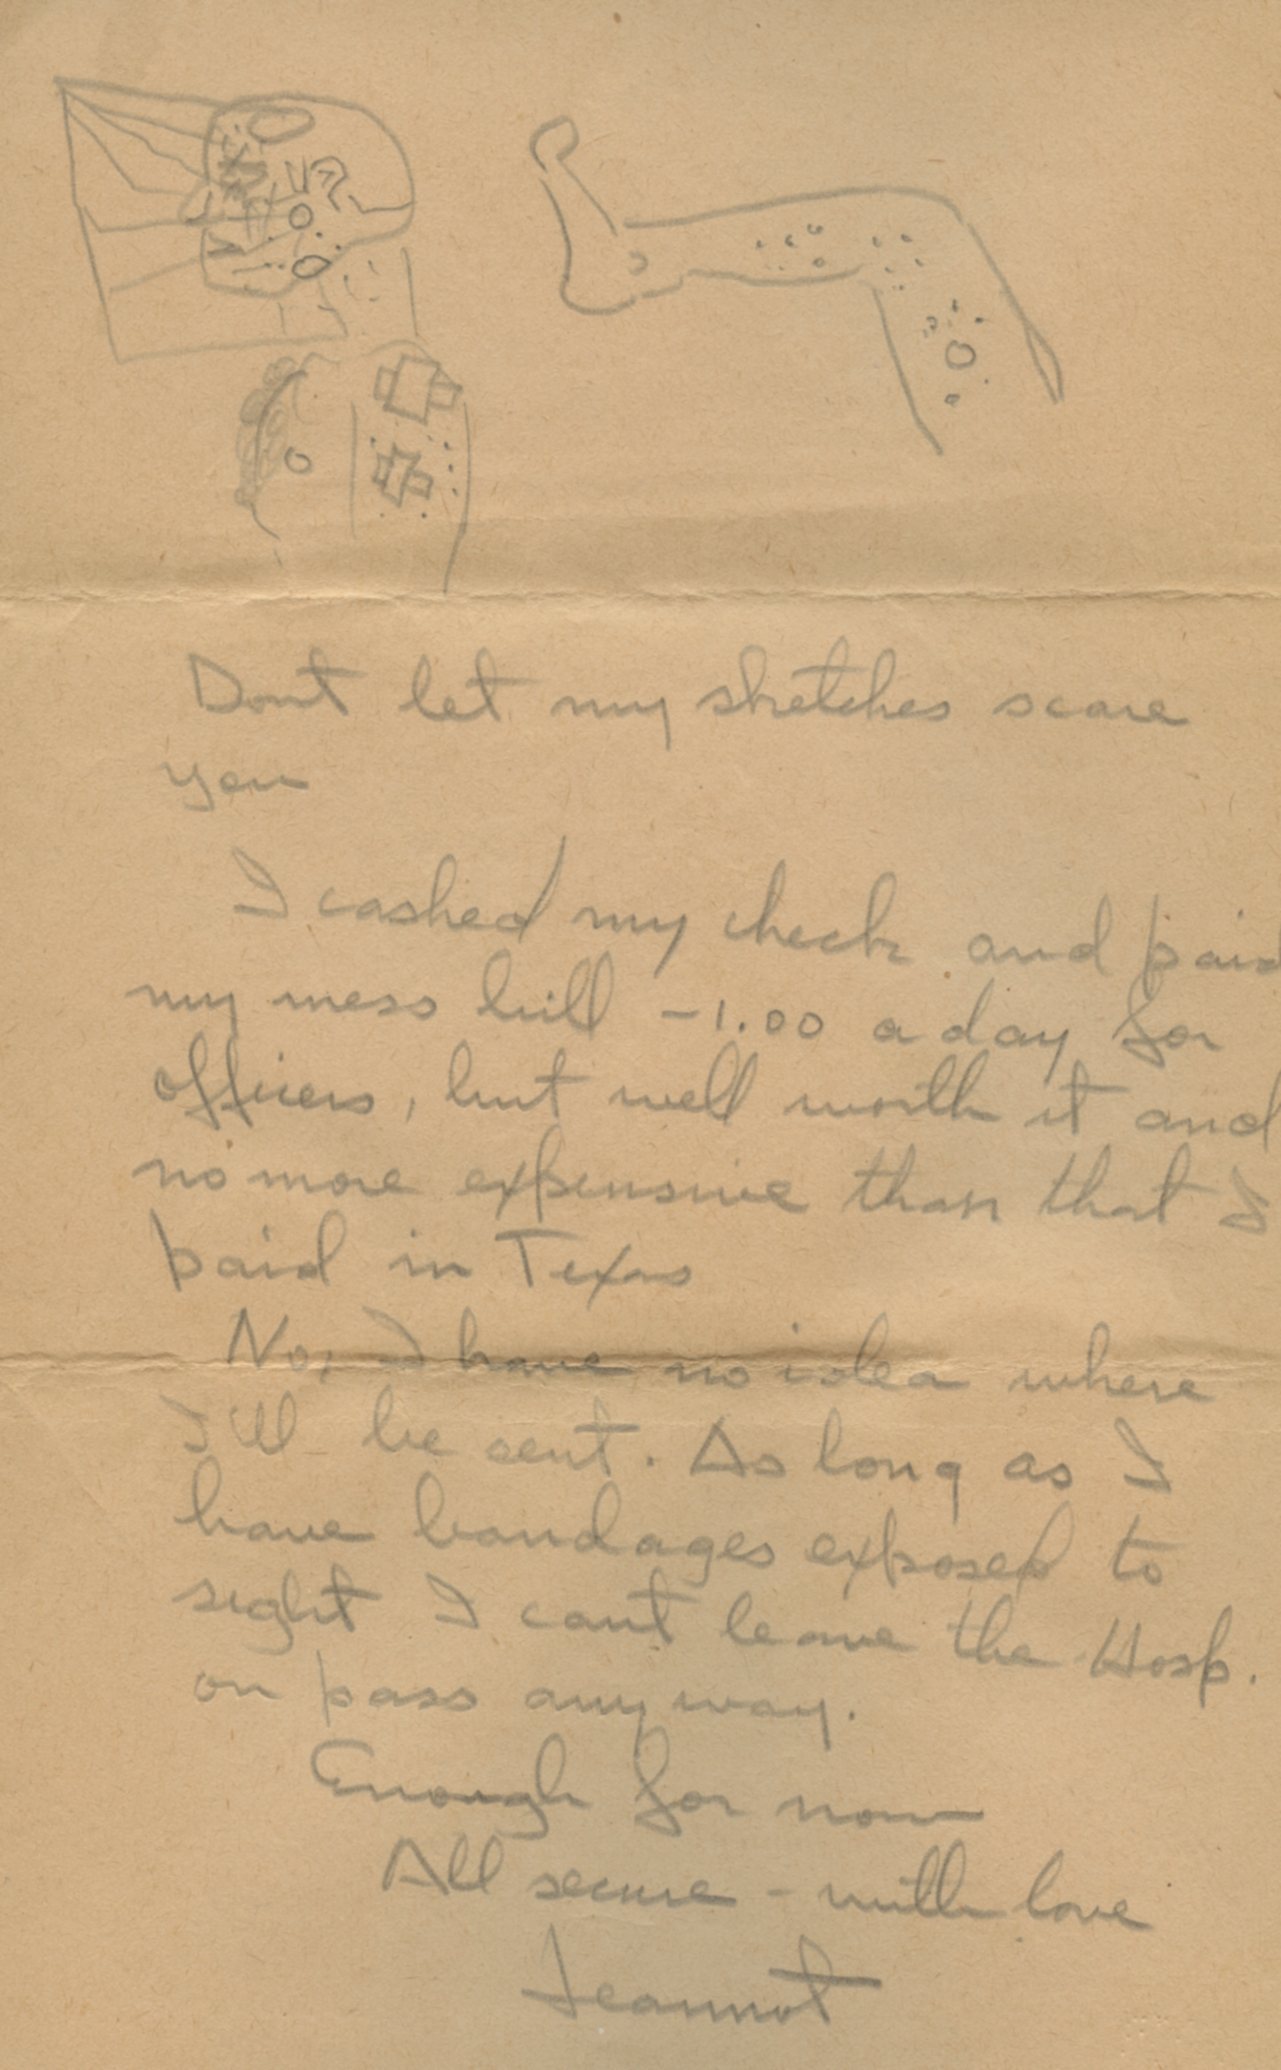 Dont let my sketches scare
you
I cashed my check and paid
my mess bill - 1.00 a day for
officers, but well worth it and
no more expensive than that I
paid in Texas
No, I have no idea where
I'll be sent. As long as I
have bandages exposed to
sight I cant leave the Hosp.
on pass anyway.
Enough for now
All secure - with love
Jeannot